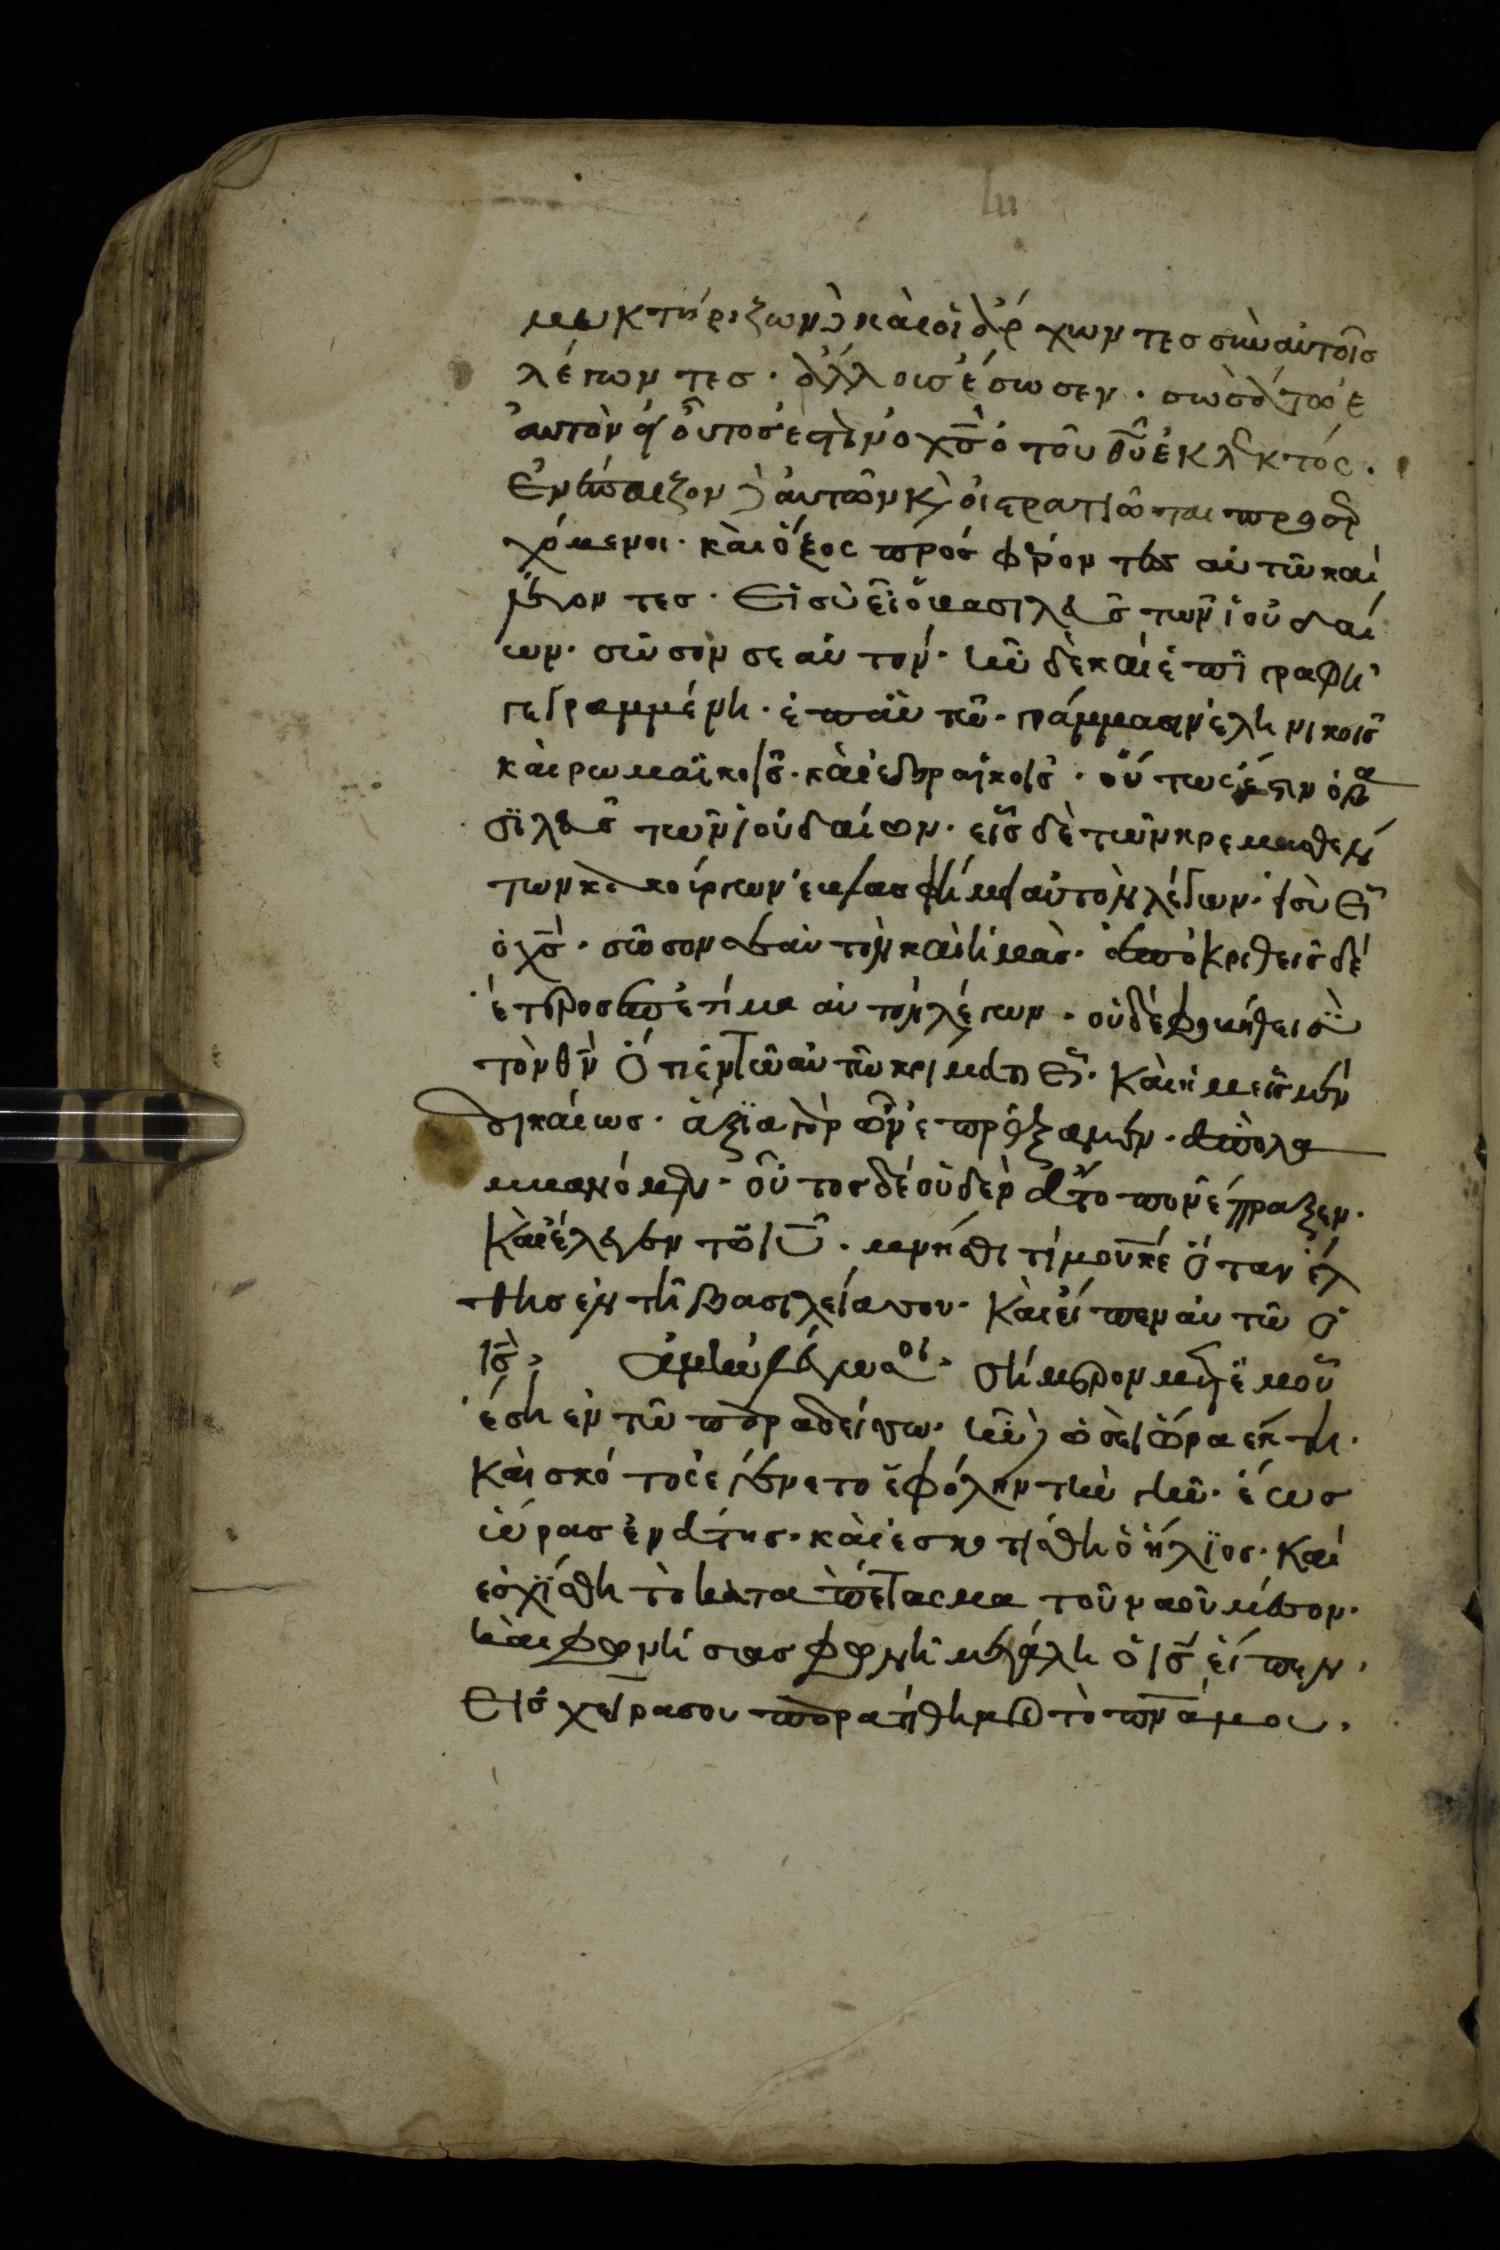 μυκτήριζων δὲ καὶ οἱ ἄρχωντες σὺν αὐτοῖς
λέγωντες· ἄλλοις ἔσωσεν· σωσάτω ἑ
αυτὸν εἰ οὗτος ἐστὶν ὁ χς̅ ὁ τοῦ θυ̅ ἐκλεκτός·
Ἐνέπαιζον δὲ αυτῶν κ̀ οἱ στρατιῶται προσερ
χόμενοι· καὶ ὄξος πρόσφέροντες αὐτῶ καὶ
λέγοντες· Εἰ σὺ εἶ ὁ βασιλεῦς τῶν ἰουδαί
ων· σῶσον σεαὐτον· ἦν δὲ καὶ ἐπιγραφὴ
γεγραμμένη· ἐπ αὐτῶ· γράμμασιν ἑλληνικοῖς
καὶ ρωμαϊκοῖς· καὶ ἑβραϊκοῖς· οὗτως ἐστιν ὁ βα
σϊλεῦς τῶν ἰουδαίων· εἷς δὲ τῶν κρεμασθέν
των κακούργων ἐβλασφήμει αὐτὸν λέγων· εἰ σὺ εἶ
ὁ χς̅· σῶσον σεαυτὸν καὶ ἡμᾶς· ἀποκριθεὶς δὲ
ἕτερος ἐπετίμα αὐτὸν λέγων· οὐδὲ φοβῆ σὺ
τὸν θν̅ Ὅτι ἐν τῶ αὐτῶ κρίματι εἶ· Καὶ ἡμεῖς μὲν
δικαίως· ἄξϊα γὰρ ὧν ἐπράξαμεν· ἀπολα
μβανόμεν· οὗτος δὲ οὐδεν ἄτοπον ἔπραξεν·
Καὶ ἔλεγεν τῶ ιυ̅· μνήσθητί μου κε̅ Ὅταν ἔλ
θης ἐν τῆ βασιλεία σου· Καὶ εἶπεν αὐτῶ ὁ
ις̅· ἀμὴν λέγω σοι· σήμερον μετ ἐμοῦ
ἔση ἐν τῶ παραδείσω· ἦν δὲ ὡσεὶ ὥρα ἕκτη·
Καὶ σκότος ἐγένετο ἐφ ὅλην τὴν γῆν· ἕως
ὥρας ἐνάτης· καὶ ἐσκοτίσθη ὁ ἥλϊος· Καὶ
ἐσχϊσθη τὸ κατα πέτασμα τοῦ ναοῦ μέσον·
καὶ φωνήσας φωνῆ μεγάλη ὁ ις̅ εἶπεν·
Εἰς χεῖρας σου παραθήσομαι τὸ πνα̅ μου·